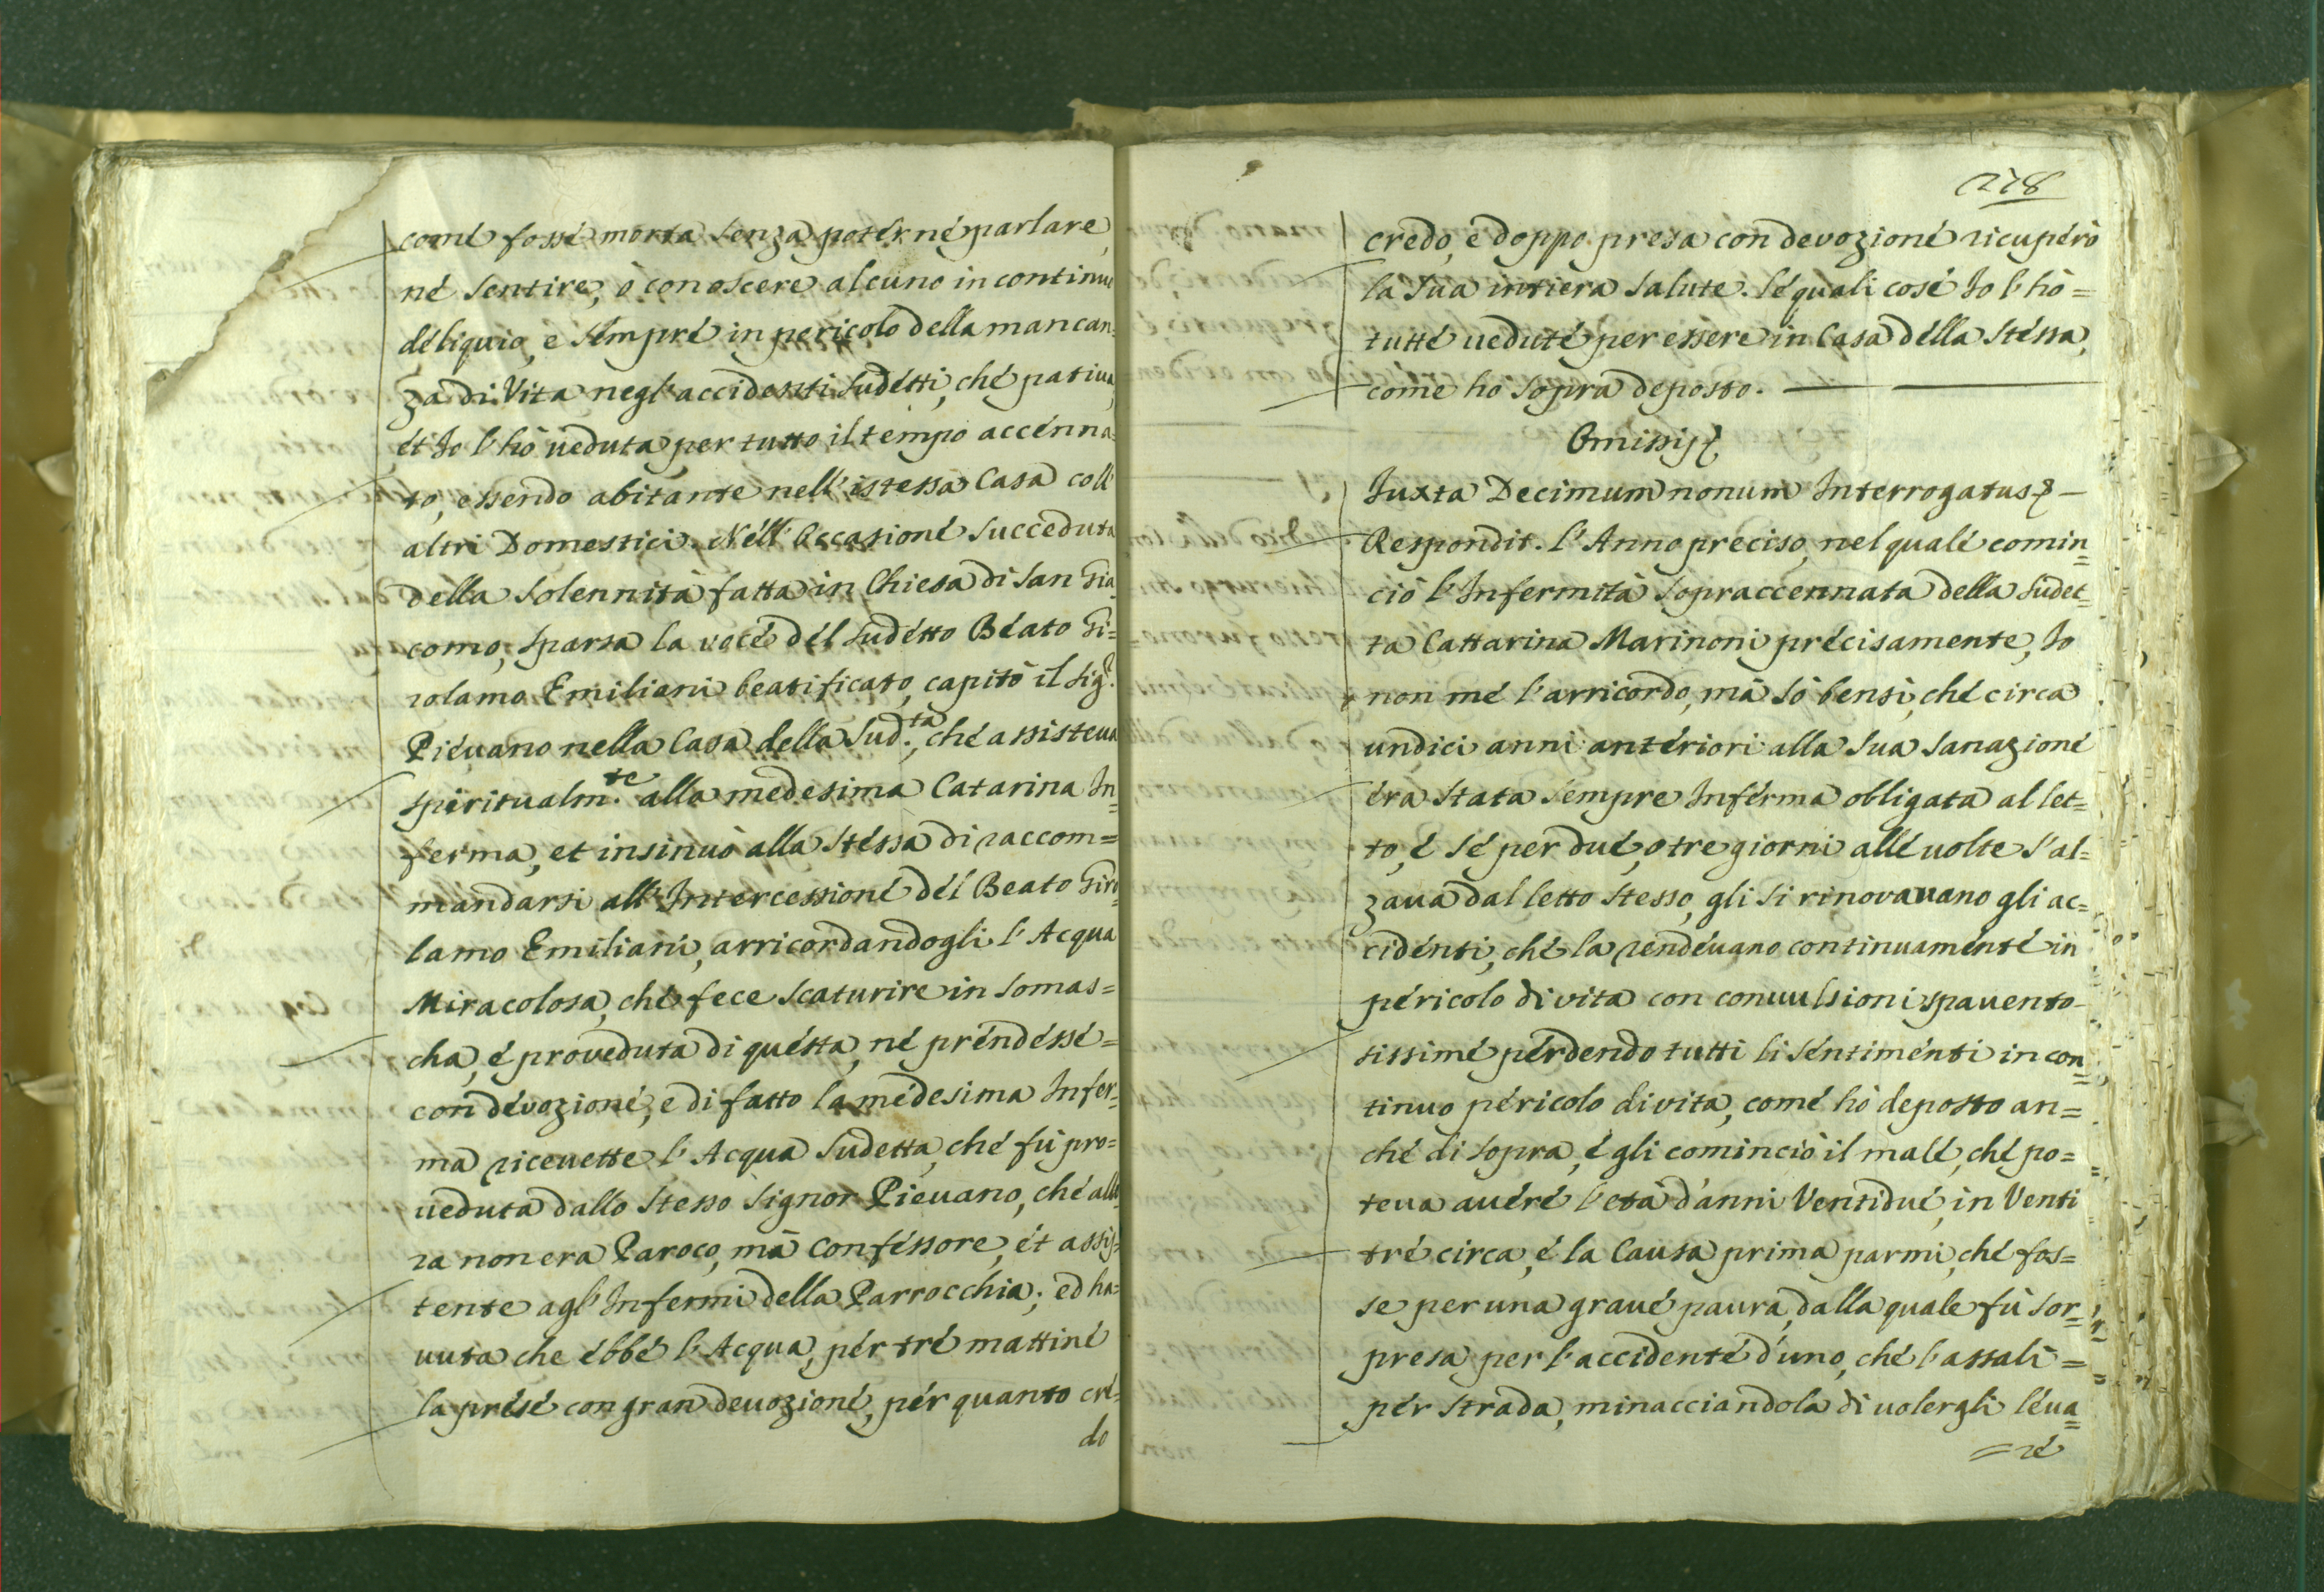 comé fossé morta senza potérné parlare,
né sentire, ò conoscere alcuno in continuo
déliquio, e sémpré in pericolo della mancan=
za di Vita negl'accidenti sudétti, ché patiua,
ét Io l'hò ueduta per tutto il tempo accénna=
to, essendo abitante nell'istessa Casa coll'
altri Domestici. Néll'Occasioné succeduta
della Solennità fatta in Chiesa di San Gia=
como, sparsa la vocé dél sudétto Béato Gi=
rolamo Emiliani beatificato, capitò il Sig.r
Piéuano nella Casa della Sud.ta, ché assisteua
spiritualm.te alla medesima Catarina In=
ferma, et insinuò alla stéssa di raccom=
mandarsi all'Intercessioné dél Beato Giro=
lamo Emiliani, arricordandogli l'Acqua
Miracolosa, ché fece scaturire in Somas=
cha, é proueduta di quésta, né préndéssé=
con dévozioné, e di fatto la médesima Infer=
ma riceuette l'Acqua sudetta, ché fù pro=
ueduta dallo stesso Signor Pieuano, ché allo=
ra non era Paroco, mà Conféssore, ét assis=
tente agl'Infermi della Parrocchia; ed ha=
uuta che ébbé l'Acqua, pér tré mattiné
la présé con gran deuozioné, pér quanto cré=
do
278
credo, e doppo presa con devozioné ricupérò
la sua intiera salute. Lé quali cosé Io l'hò=
tutté ueduté per essere in Casa délla stéssa,
come ho sopra deposto.
Omissis
Juxta Decimum nonum Interrogatus
Respondit. L'Anno preciso, nel qualé comin=
ciò l'Infermità sopraccennata della sudet=
ta Cattarina Marinoni précisamente, Io
non mé l'arricordo, mà sò bensì, ché circa
undici anni antériori alla sua sanazioné
éra stata sémpre Inférma obligata al let=
to, é sé per dué, o tre giorni allé uolte s'al=
zaua dal letto stesso, gli si rinovauano gli ac=
cidénti, ché la rendéuano continuaménté in
péricolo di vita con conuulsioni spauento=
sissimé pérdendo tutti li séntiménti in con=
tinuo péricolo di vita, comé hò deposto an=
ché di sopra, é gli cominciò il malé, ché po=
teua auéré l'età d'anni Ventidué, in Venti
tré circa, é la Causa prima parmi, ché fos=
se per una graué paura, dalla quale fù sor=
presa per l'accidenté d'uno, ché l'assalì=
pér strada, minacciandola di uolergli léua=
=ré